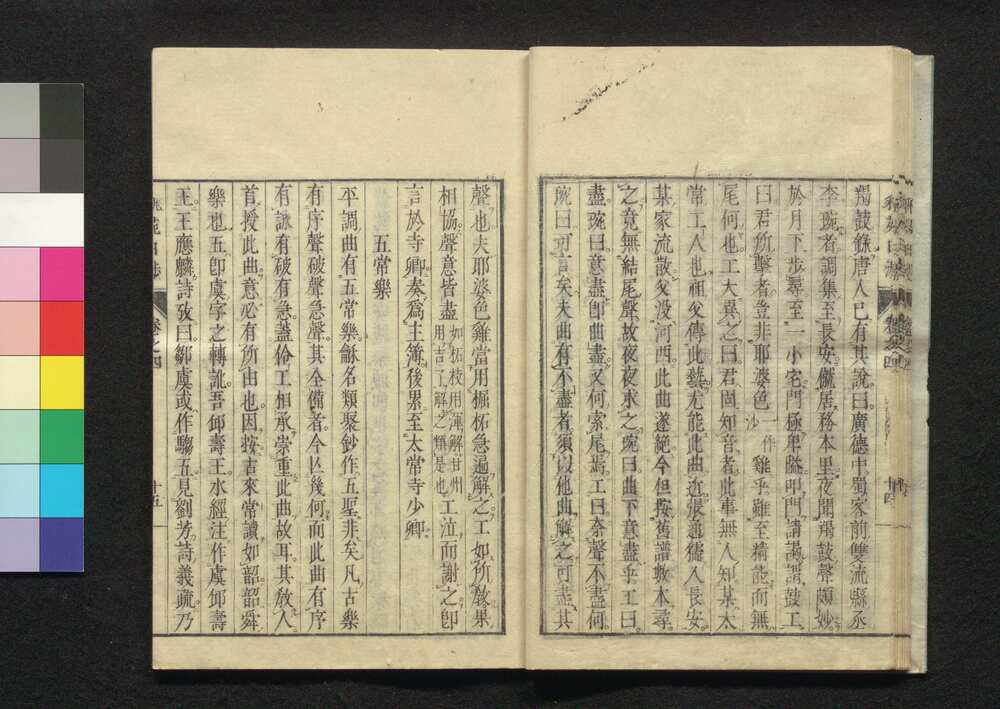 羯鼓錄唐人已有其說曰廣德中蜀客前雙流縣丞
李琬者調集至長安僦居務本里夜聞羯鼓聲頗妙
於月下步尋至一小宅門極卑隘叩門請謁謂鼓工
曰君所擊者豈非耶婆色一作沙雞乎雖至精能而無
尾何也工大異之曰君固知音者此事無人知某太
常工人也祖父傳此藝尤能此曲近張通儒入長安
某家流散父沒河西此曲遂絕今但按舊譜數本尋
之竟無結尾聲故夜夜求之琬曰曲下意盡乎工曰
盡琬曰意盡卽曲盡又何索尾焉工曰奈聲不盡何
琬曰可言矣夫曲有不盡者須以他曲解之可盡其
聲也夫耶婆色雞當用掘柘急遍解之工如所敎果
相協聲意皆盡如柘枝用渾解甘州用吉了解之類是也工泣而謝之卽
言於寺卿奏爲主簿後累至太常寺少卿
五常樂
平調曲有五常樂龢名類聚鈔作五聖非矣凡古樂
有序聲破聲急聲其全備者今亾幾何而此曲有序
有詠有破有急蓋伶工相承崇重此曲故耳其敎人
首授此曲意必有所由也因按古來常讀如韶韶舜
樂也五卽虞字之轉訛吾邱壽王水經注作虞邱壽
王王應麟詩攷曰鄒虞或作騶五見劉芳詩義疏乃
卷之四
十五